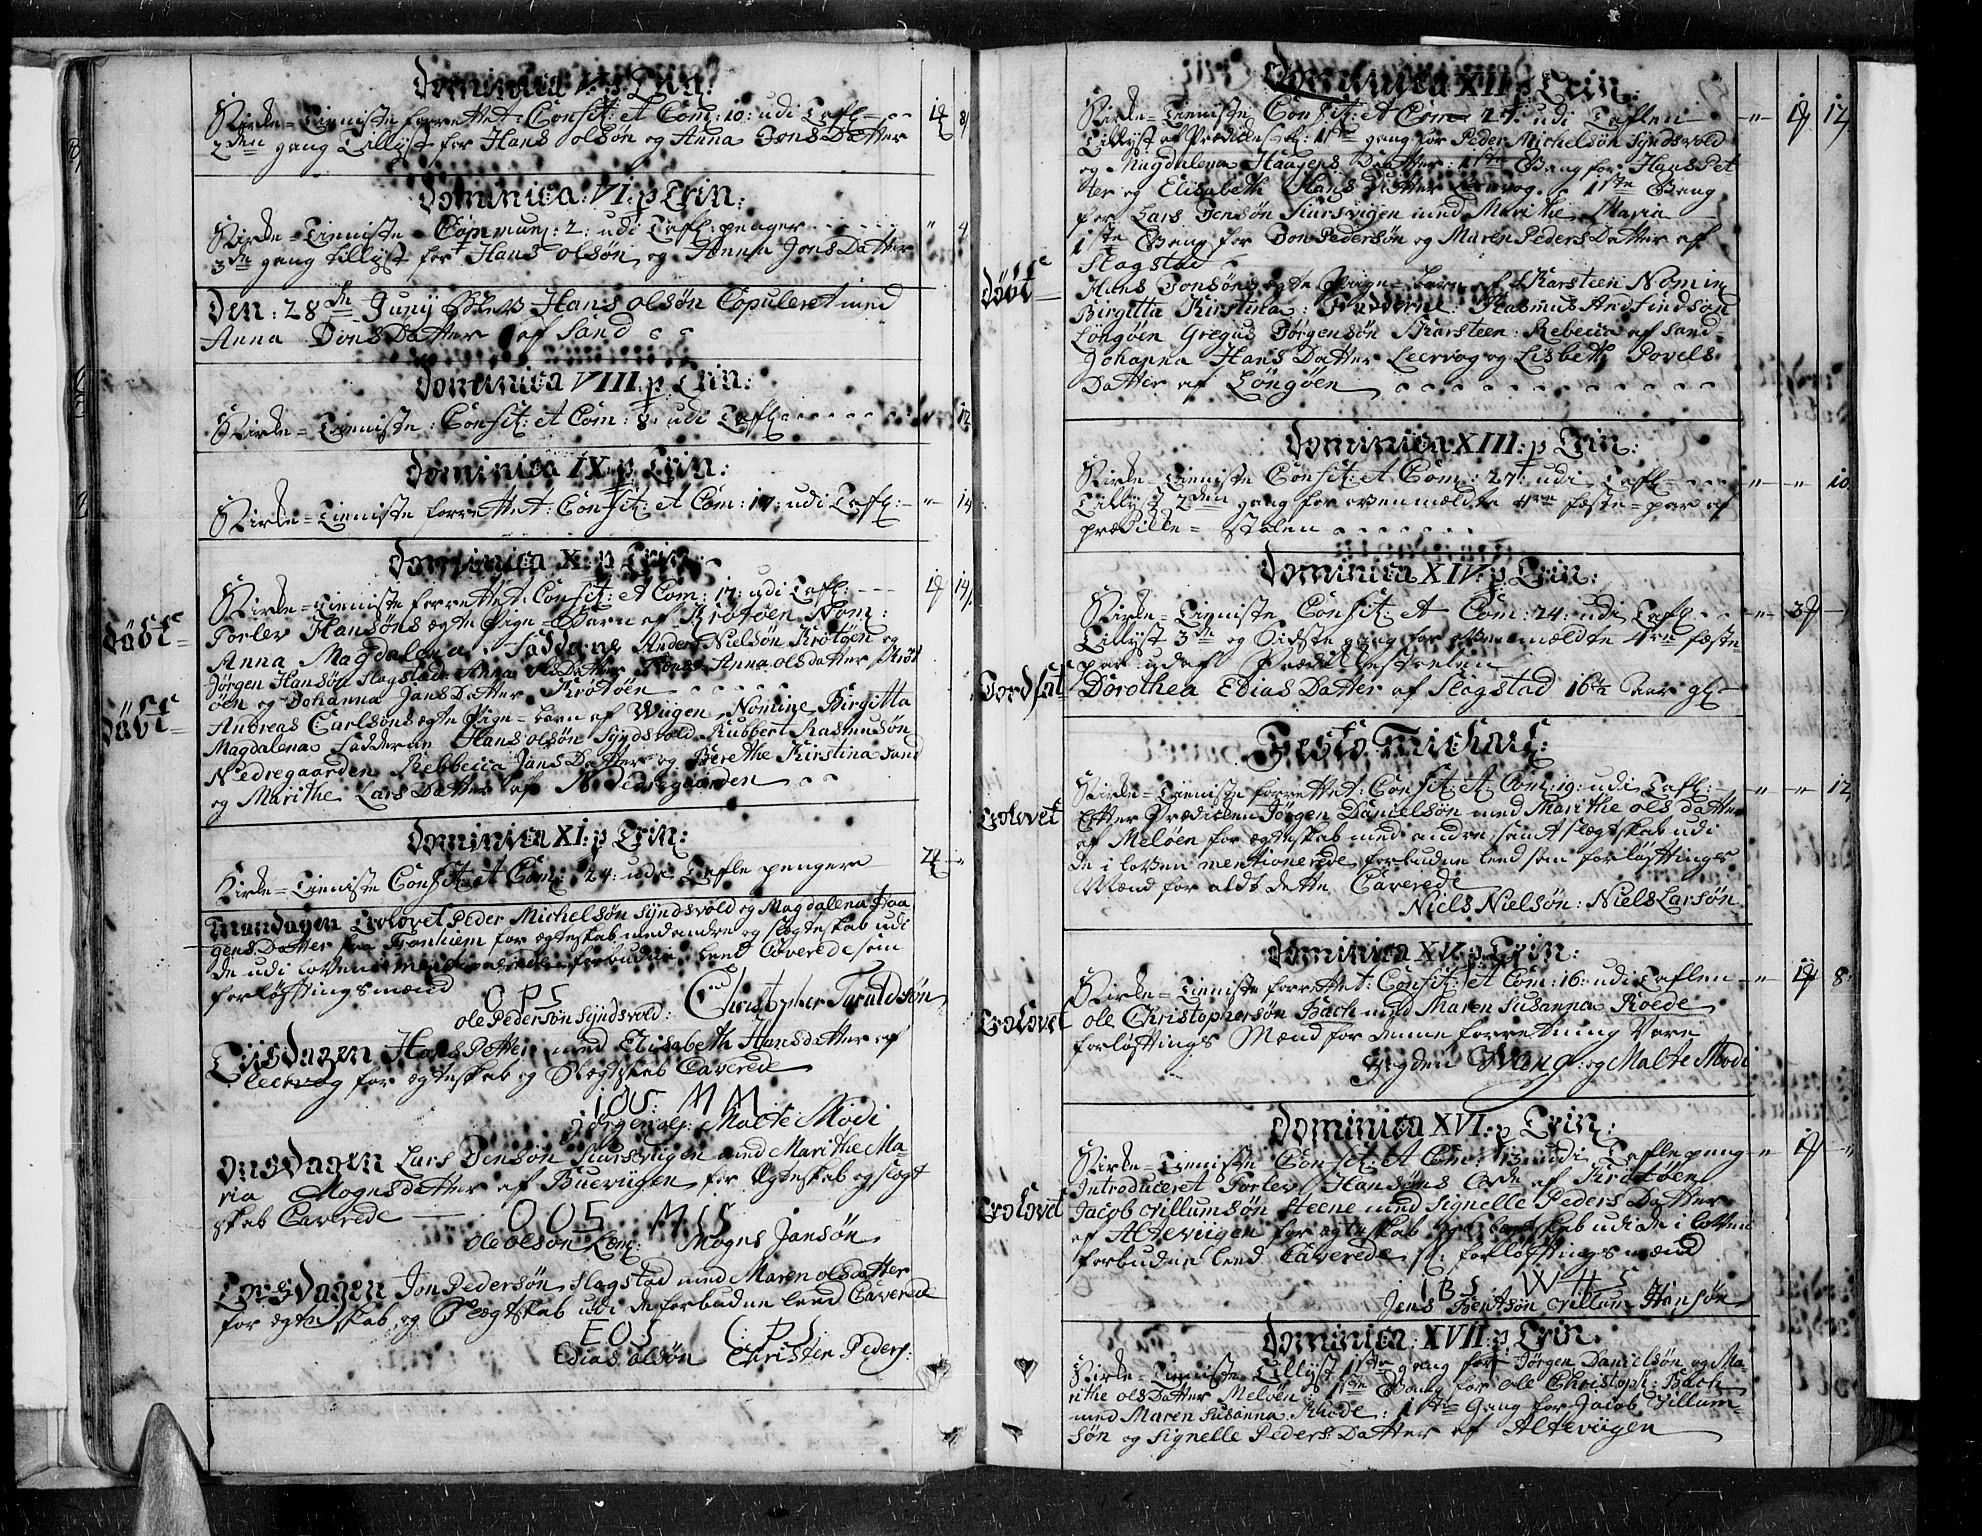 Dominica V: p Trin:
Kirke=Tieniste forrettet Consit: et Com: 10: udi Tafl
2den gang Tillyst for Hans olsøn og Anna Jons Datter
1 8
Dominica: VI: p Trin:
Kirke=Tieniste Commun: 2: udi Tafl:penger
3de gang tillyst for Hans olsøn og Anna Jons Datter
" 4
Den: 28de Juny Blev Hans olsøn Copuleret med
Anna Jons Datter af Sand
Dominica VIII: p Trin:
Kirke=Tieniste: Consit: et Com: 8: udi Tafl
" 12
Dominica IX: p Trin:
Kirke=Tieniste forrettet: Consit: et Com: 17: udi Tafl:
" 14
Dominica X: p Trin:
Kirke=Tieniste forrettet: Consit: et Com: 17: udi Tafl:
Døbt= Torlev Hansøns ægte Pige=Barn af Krotøen Nom:
Anna Magdalena. Fadderne Anders Nielsøn Krotøen og
Jørgen Hansøn Slagstad Anna olsDatter Anna olsdatter Krot
øen og Johanna Jans Datter Krotøen
Døbt= Andreas Carlsøns egte Pige=barn af Wiigen Nomine Birgitta
Magdalena Fadderne Hans olsøn Syndsvold Rubbert Rasmusøn
Nedregaarden Rebbecca Jans Datter og Berethe Kirstina Sand
og Marithe Lars Datter af Nedregaarden
Dominica XI: p Trin:
Kirke=Tieniste Consit: et Com: 24: udi Tafle pengene
Mandagen Trolovet Peder Michelsøn Syndsvold og Magdalena Haa
gens Datter fra Tronhiem for ægteskab med andre og slegteskab udi
de udi loven mentionerede forbudne leed Caverede som
forløftings mænd
O P S
ole Pedersøn Syndsvold: Christopher Taraldsøn
Tiisdagen Hans Petter med Elisabeth Hansdatter af
leervog for ægteskab og Slegtskab Caverede
IOS: MM
Jørgen ols: Malte Modi
Onsdagen Lars Jensøn Kiursviigen med Marithe Ma-
ria Mognsdatter af Bueviigen for Ægteskab og slegt
skab Caverede
OOS MIS
ole olsøn Mogns Jansøn
Torsdagen Jon Pedersøn Slagstad med Maren olsdatter
for ægteskab og Slegtskab udi de forbudne leed Caverede
EOS CPS
Edias olsøn Christen Peders:
Dominica XII: p Trin:
Kirke=Tieniste Consit: et Com 27: udi Taflen
Tillyst af Prædicke Stol: 1ste gang for Peder Michelsøn Syndsvold
og Magdalena Haagens Datter: 1ste Gang for Hans Pet
ter og Elisabeth Hans Datter Leervog. 1ste Gang
for Lars Jensøn Kiursviigen med Marithe Maria
1ste Gang for Jon Pedersøn og Maren Peders Datter af
Slagstad
Døbt= Hans Jonsøns egte Pige=barn af Karsteen Nomin
Birgitta Kirstina: Fadderne: Rasmus Arnfindsøn
Löngöen Gregus Jørgensøn Karsteen: Rebecca af Sand
Johanna Hans Datter Leervog og Lisbeth Povels
Datter af Löngöen
Dominica XIII: p Trin:
Kirke=Tieniste Consit: et Com: 27: udi Tafl
Tillyst 2den gang for ovenmældte 4re fæste=par af
prædicke=stolen
" " 10
Dominica XIV: p Trin:
Kirke=Tieniste Consit: et Com: 24: udi Tafl:
Tillyst 3de og Sidste gang for ovenmældte 4re fæste
par udaf Prædickestoelen
Jordfat Dorothea Edias Datter af Slagstad 16 1/2 aar gl:
Festo Michael:
Kirke=Tieniste forrettet: Consit: et Com: 19: udi Tafl:
Trolovet Efter Prædicken Jørgen Danielsøn med Marithe ols datter
af Meløen for ægteskab med andre samt slegtskab udi
de i loven mentionerede forbudne leed som forløftings
Mænd for aldt dette Caverede
Niels Nielsøn: Niels Larsøn
Dominica XV: p Trin:
Kirke=Tieniste forrettet: Consit: et Com: 16: udi Taflen
Trolovet ole Christophersøn Bach med Maren Susanna Roede
forløftings Mænd for denne forretning Vare
og Malte Modi
Dominica XVI: p Trin:
Kirke=Tieniste Consit: et Com: 13: udi Taflepeng
Introduceret Torlev Hansøns Kone af Krotøen
Trolovet Jacob Villumsøn Heene med Signelle Peders Datter
af Alteviigen for egteskab og Slegtskab udi de i loven
forbudne leed Caverede sc: forløftings mænd
IBS WHS
Jens Bentsøn Villum Hansøn
Dominica: XVII: p Trin.
Kirke=Tieniste Tillyst 1ste gang for Jørgen Danielsøn og Ma-
rithe ols Datter Meløen: 1ste Gang for ole Christoph: Bach
med Maren Susanna Rhode: 1ste Gang for Jacob Villum-
søn og Signelle Peders Datter af Alteviigen